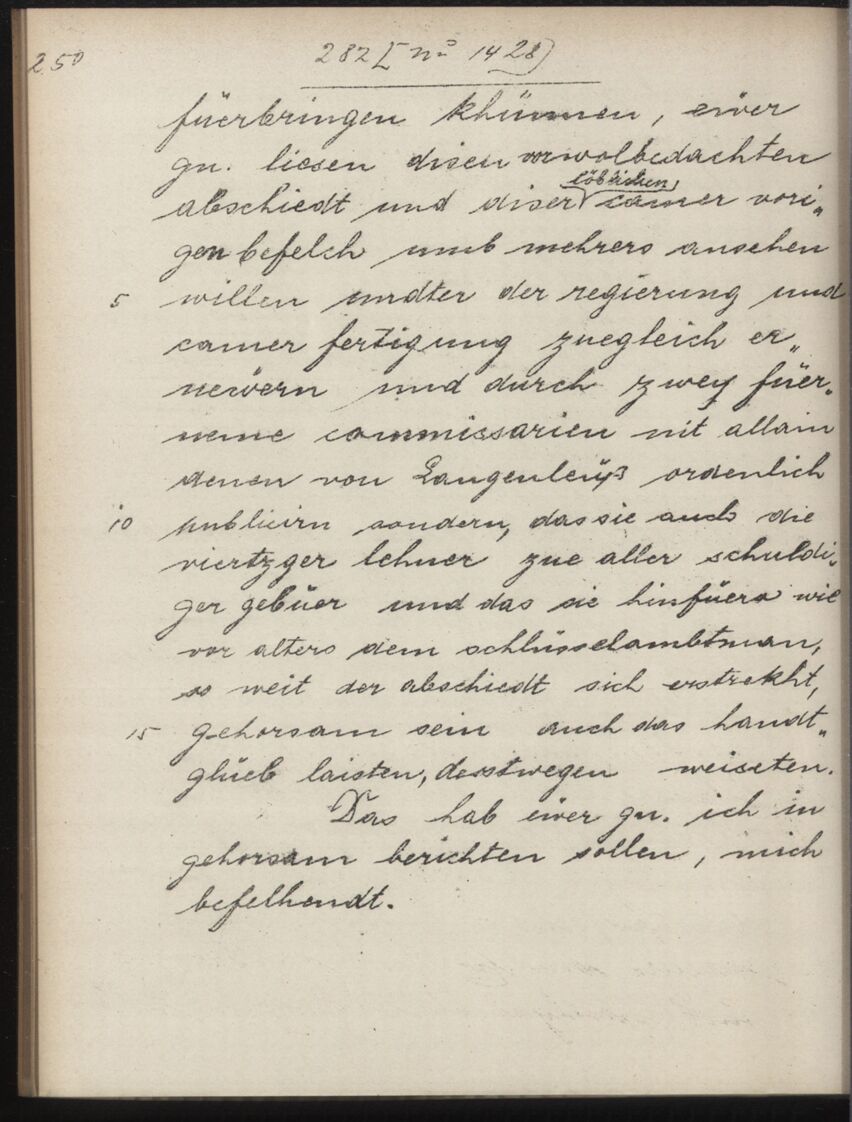 250
282 [nº 1428)
füerbringen khünnen, eẅer
gn. liesen disen vorwolbedachten
löblichen
abschiedt und diser camer vori„
gen befelch umb mehrers ansehen
5 willen undter der regierung und
camer fertigung zuegleich er„
neẅern und durch zwey füer„
neme commissarien nit allain
denen von Langenleüß ordenlich
10 publicirn sondern, das sie auch die
viertzger lehner zue aller schuldi„
ger gebüer und das sie hinfüero wie
vor alters dem schlüsselambtman,
so weit der abschiedt sich erstrekht,
15 gehorsam sein auch das handt„
glüeb laisten, desstwegen weiseten.
Das hab eẅer gn. ich in
gehorsam berichten sollen, mich
befelhendt.